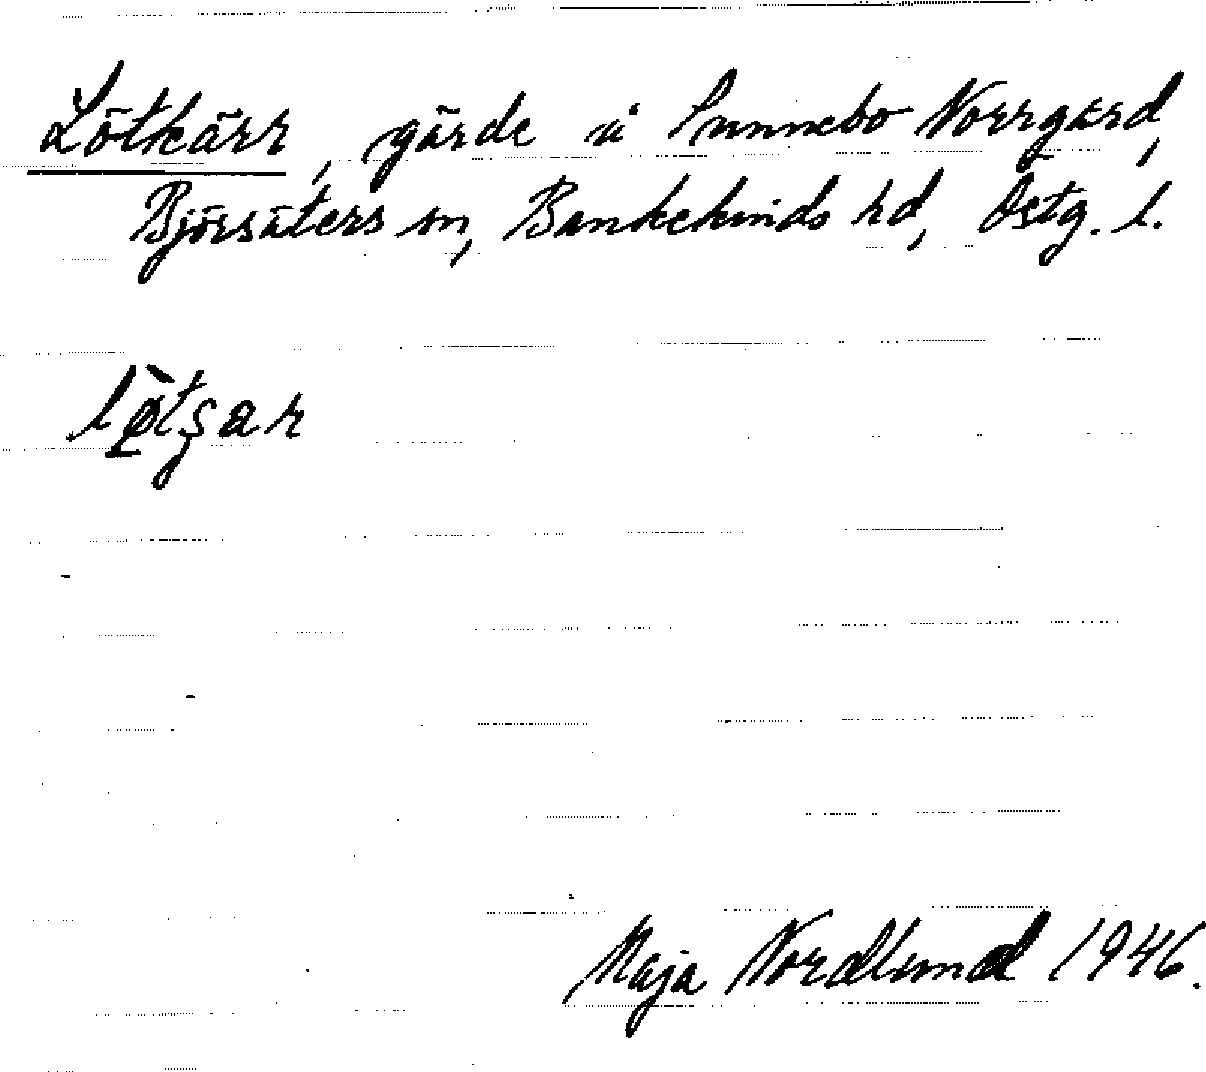 Lötkärr, gärde å Sunnebo Norrgård,
Björsäters sn, Bankekinds hd, Östg. l.
Maja Nordlund 1946.